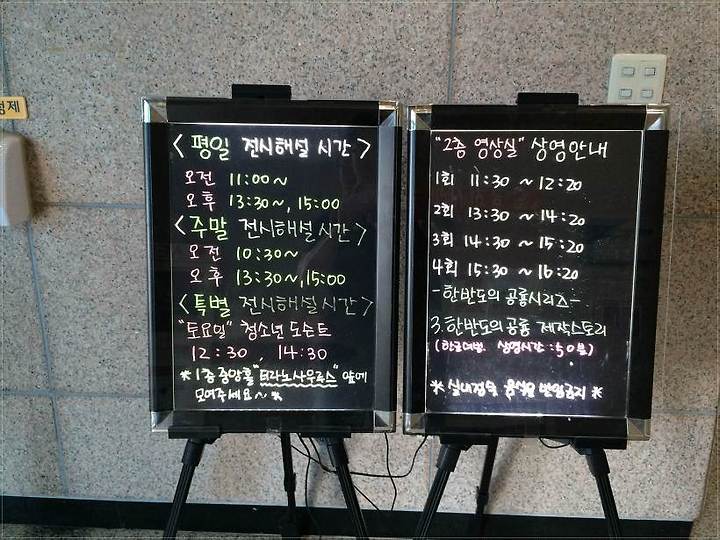 형제
< 평일 전시해설 시간 >
오전 11:00~
오후 13:30~, 15:00
< 주말 전시해설시간 >
오전 10:30~
오후 13:30~, 15:00
< 특별 전시해설시간 >
"토요일" 청소년 도슨트
12:30 , 14:30
* 1층 중앙홀 "티라노사우루스" 앞에
모여주세요~ *
"2층 영상실" 상영안내
1회 11:30 ~ 12:20
2회 13:30 ~ 14:20
3회 14:30 ~ 15:20
4회 15:30 ~ 16:20
-한반도의 공룡시리즈-
3. 한반도의공룡 제작스토리
(한국어. 상영시간 : 50분)
* 실내정숙 음식물 반입금지 *